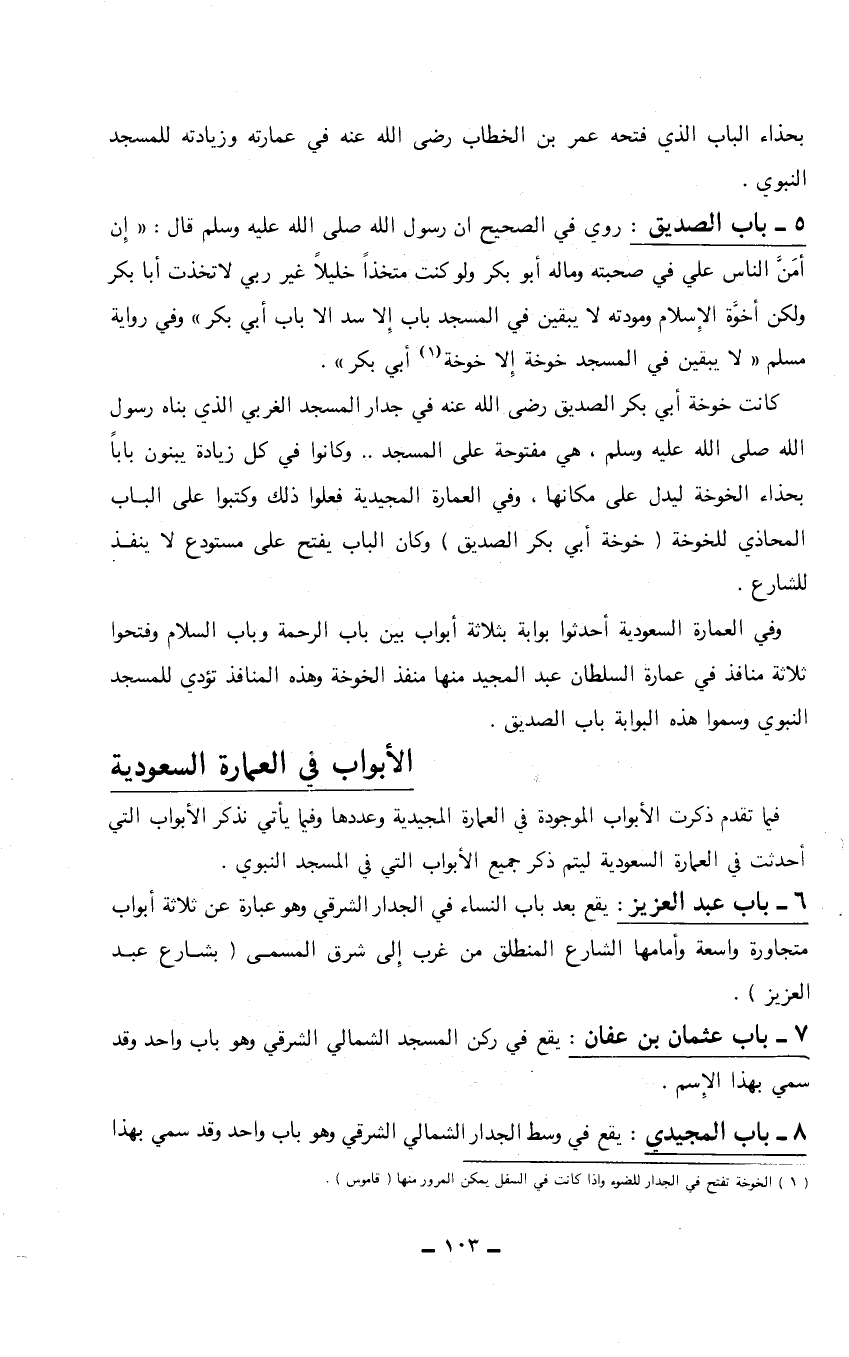 بحذاء الباب الذي فتحه عمر بن الخطاب رضى الله عنه في عمارته وزيادته للمسجد
النبوي .
٥ ـ باب الصديق : روي في الصحيح ان رسول الله صلى الله عليه وسلم قال : « إن
أمَنَّ الناس علي في صحبته وماله أبو بكر ولو كنت متخذاً خليلاً غير ربي لاتخذت أبا بكر
ولكن أخوَّة الإسلام ومودته لا يبقين في المسجد باب إلا سد الا باب أبي بكر » وفي رواية
مسلم « لا يبقين في المسجد خوخة إلا خوخة(١) أبي بكر » .
كانت خوخة أبي بكر الصديق رضى الله عنه في جدار المسجد الغربي الذي بناه رسول
الله صلى الله عليه وسلم ، هي مفتوحة على المسجد .. وكانوا في كل زيادة يبنون باباً
بحذاء الخوخة ليدل على مكانها ، وفي العمارة المجيدية فعلوا ذلك وكتبوا على البـاب
المحاذي للخوخة ( خوخة أبي بكر الصديق ) وكان الباب يفتح على مستودع لا ينفـذ
للشارع .
وفي العمارة السعودية أحدثوا بوابة بثلاثة أبواب بين باب الرحمة وباب السلام وفتحوا
ثلاثة منافذ في عمارة السلطان عبد المجيد منها منفذ الخوخة وهذه المنافذ تؤدي للمسجد
النبوي وسموا هذه البوابة باب الصديق .
الأبواب في العمارة السعودية
فيما تقدم ذكرت الأبواب الموجودة في العمارة المجيدية وعددها وفيما يأتي نذكر الأبواب التي
أحدثت في العمارة السعودية ليتم ذكر جميع الأبواب التي في المسجد النبوي .
٦ ـ باب عبد العزيز : يقع بعد باب النساء في الجدار الشرقي وهو عبارة عن ثلاثة أبواب
متجاورة واسعة وأمامها الشارع المنطلق من غرب إلى شرق المسمـى ( بشـارع عبـد
العزيز ) .
٧ ـ باب عثمان بن عفان : يقع في ركن المسجد الشمالي الشرقي وهو باب واحد وقد
سمي بهذا الإسم .
٨ ـ باب المجيدي : يقع في وسط الجدار الشمالي الشرقي وهو باب واحد وقد سمي بهذا
( ١ ) الخوخة تفتح في الجدار للضوء واذا كانت في السفل يمكن المرور منها ( قاموس ) .
ـ ١٠٣ ـ